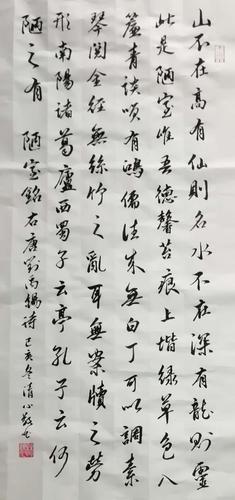 山不在高有仙則名水不在深有龍則靈
此是陋室惟吾德馨苔痕上堦緑草色入
簾青談有鴻儒往来無白丁可以調素
琴閲金經無絲竹之亂耳無案牘之勞
形南陽諸葛廬西蜀子云亭孔子云何
陋之有 陋室銘 右唐劉禹錫詩 己亥冬清心